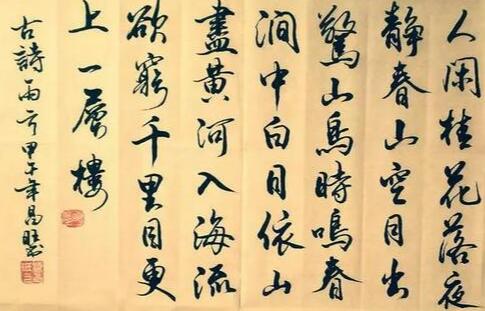 人闲桂花落夜
静春山空月出
驚山鳥時鳴春
澗中白日依山
盡黄河入海流
欲窮千里目更
上一層樓
古詩兩首甲午年昌